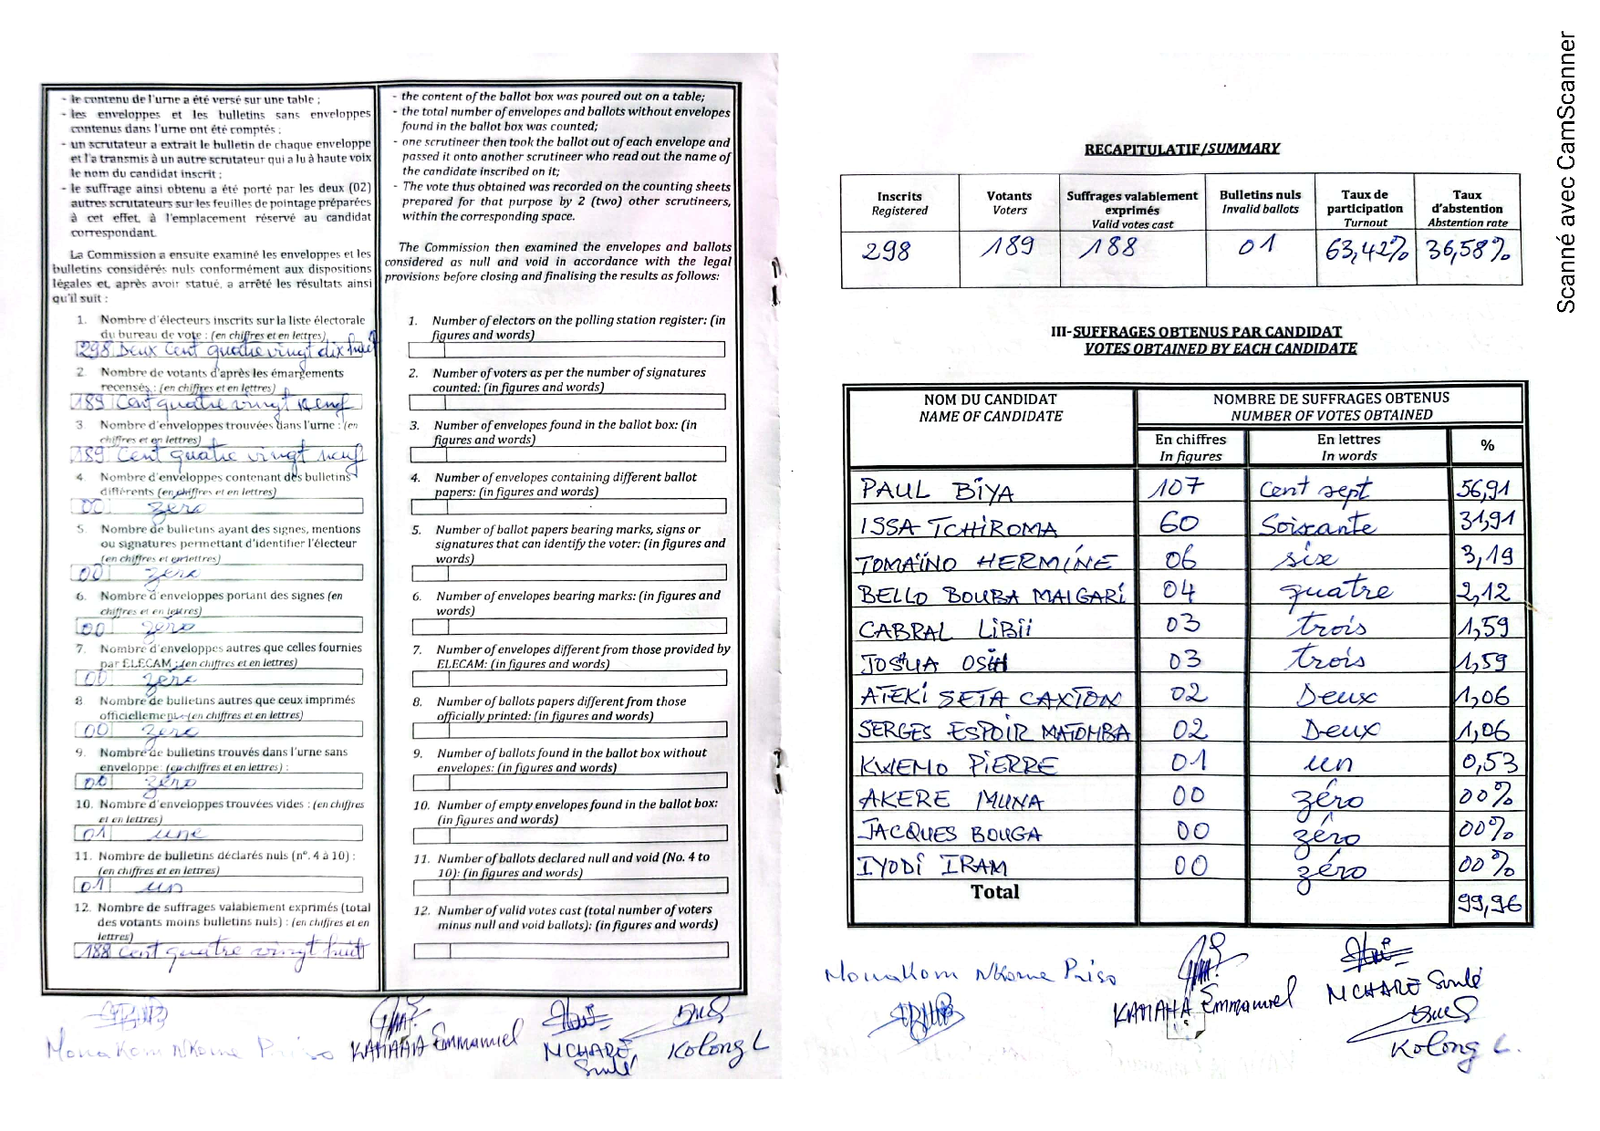 - le contenu de l'urne a été versé sur une table ;
- les enveloppes et les bulletins sans enveloppes
contenus dans l'urne ont été comptés ;
- un scrutateur a extrait le bulletin de chaque enveloppe
et l'a transmis à un autre scrutateur qui a lu à haute voix
le nom du candidat inscrit ;
- le suffrage ainsi obtenu a été porté par les deux (02)
autres scrutateurs sur les feuilles de pointage préparées
à cet effet, à l'emplacement réservé au candidat
correspondant.
La Commission a ensuite examiné les enveloppes et les
bulletins considérés nuls conformément aux dispositions
légales et, après avoir statué, a arrêté les résultats ainsi
qu'il suit :
1. Nombre d'électeurs inscrits sur la liste électorale
du bureau de vote : (en chiffres et en lettres)
298 Deux Cent quatre vingt dix huit
2. Nombre de votants d'après les émargements
recensés : (en chiffres et en lettres)
189 Cent quatre vingt neuf
3. Nombre d'enveloppes trouvées dans l'urne : (en
chiffres et en lettres)
189 Cent quatre vingt neuf
4. Nombre d'enveloppes contenant des bulletins
différents (en chiffres et en lettres)
00 zéro
5. Nombre de bulletins ayant des signes, mentions
ou signatures permettant d'identifier l'électeur
(en chiffres et en lettres)
00 zéro
6. Nombre d'enveloppes portant des signes (en
chiffres et en lettres)
00 zéro
7. Nombre d'enveloppes autres que celles fournies
par ELECAM : (en chiffres et en lettres)
00 zéro
8 Nombre de bulletins autres que ceux imprimés
officiellement (en chiffres et en lettres)
00 zéro
9. Nombre de bulletins trouvés dans l'urne sans
enveloppe : (en chiffres et en lettres) :
00 zéro
10. Nombre d'enveloppes trouvées vides : (en chiffres
et en lettres)
01 une
11. Nombre de bulletins déclarés nuls (n°. 4 à 10) :
(en chiffres et en lettres)
01 un
12. Nombre de suffrages valablement exprimés (total
des votants moins bulletins nuls) : (en chiffres et en
lettres)
188 Cent quatre vingt huit
- the content of the ballot box was poured out on a table;
- the total number of envelopes and ballots without envelopes
found in the ballot box was counted;
- one scrutineer then took the ballot out of each envelope and
passed it onto another scrutineer who read out the name of
the candidate inscribed on it;
- The vote thus obtained was recorded on the counting sheets
prepared for that purpose by 2 (two) other scrutineers,
within the corresponding space.
The Commission then examined the envelopes and ballots
considered as null and void in accordance with the legal
provisions before closing and finalising the results as follows:
1. Number of electors on the polling station register: (in
figures and words)
2. Number of voters as per the number of signatures
counted: (in figures and words)
3. Number of envelopes found in the ballot box: (in
figures and words)
4. Number of envelopes containing different ballot
papers: (in figures and words)
5. Number of ballot papers bearing marks, signs or
signatures that can identify the voter: (in figures and
words)
6. Number of envelopes bearing marks: (in figures and
words)
7. Number of envelopes different from those provided by
ELECAM: (in figures and words)
8. Number of ballots papers different from those
officially printed: (in figures and words)
9. Number of ballots found in the ballot box without
envelopes: (in figures and words)
10. Number of empty envelopes found in the ballot box:
(in figures and words)
11. Number of ballots declared null and void (No. 4 to
10): (in figures and words)
12. Number of valid votes cast (total number of voters
minus null and void ballots): (in figures and words)
Monakom Nkome Priso KAMAHA Emmanuel MCHARE Kolong L
Soulé
RECAPITULATIF/SUMMARY
Inscrits Votants Suffrages valablement Bulletins nuls Taux de Taux
Registered Voters exprimés Invalid ballots participation d'abstention
Valid votes cast Turnout Abstention rate
298 189 188 01 63,42% 36,58%
III-SUFFRAGES OBTENUS PAR CANDIDAT
VOTES OBTAINED BY EACH CANDIDATE
NOM DU CANDIDAT NOMBRE DE SUFFRAGES OBTENUS
NAME OF CANDIDATE NUMBER OF VOTES OBTAINED
En chiffres En lettres %
In figures In words
PAUL BIYA 107 Cent sept 56,91
ISSA TCHIROMA 60 Soixante 31,91
TOMAÏNO HERMINE 06 six 3,19
BELLO BOUBA MAIGARI 04 quatre 2,12
CABRAL LIBII 03 trois 1,59
JOSUA OSIH 03 trois 1,59
ATEKI SETA CAXTON 02 Deux 1,06
SERGES ESPOIR MATOMBA 02 Deux 1,06
KWEMO PIERRE 01 un 0,53
AKERE MUNA 00 zéro 00%
JACQUES BOUGA 00 zéro 00%
IYODI IRAM 00 zéro 00%
Total 99,96
Monakom Nkome Priso KAMAHA Emmanuel MCHARE Soulé
Kolong L.
Scanné avec CamScanner